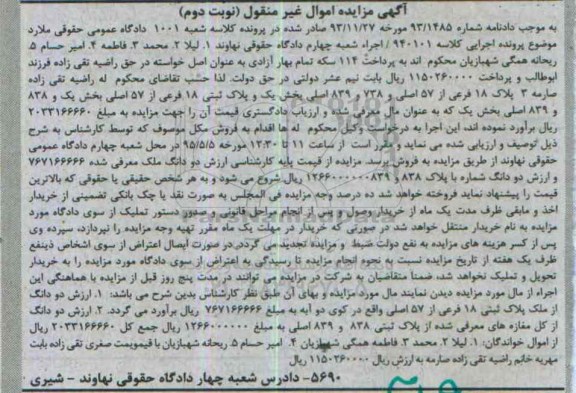 آگهی مزایده اموال غیر منقول (نوبت دوم)
به موجب دادنامه شماره ۹۳/۱۴۸۵ مورخه ۹۳/۱۱/۲۷ صادر شده در پرونده کلاسه شعبه ۱۰۰۱ دادگاه عمومی حقوقی ملارد
موضوع پرونده اجرایی کلاسه ۹۴۰۱۰۱ / اجراء شعبه چهارم دادگاه حقوقی نهاوند ۱. لیلا ۲. محمد ۳. فاطمه ۴. امیر حسام ۵.
ریحانه همگی شهبازیان محکوم اند به پرداخت ۱۱۴ سکه تمام بهار آزادی به عنوان اصل خواسته در حق راضیه تقی زاده فرزند
ابوطالب و پرداخت ۱۱۵۰۲۶۰۰۰۰ ریال بابت نیم عشر دولتی در حق دولت. لذا حسب تقاضای محکوم له راضیه تقی زاده
صارمه ۳ پلاک ۱۸ فرعی از ۵۷ اصلی و ۷۳۸ و ۸۳۹ اصلی بخش یک و پلاک ثبتی ۱۸ فرعی از ۵۷ اصلی بخش یک و ۸۳۸
و ۸۳۹ اصلی بخش یک که به عنوان مال معرفی شده و ارزیاب دادگستری قیمت آن را جهت مزایده به مبلغ ۲۰۳۳۱۶۶۶۶۰
ریال برآورد نموده اند، این اجرا به درخواست وکیل محکوم له ها اقدام به فروش مکل موصوف که توسط کارشناسی به شرح
ذیل توصیف و ارزیابی شده می نماید و مقرر است از ساعت ۱۱ تا ۱۲:۳۰ مورخه ۹۵/۵/۵ در محل شعبه چهارم دادگاه عمومی
حقوقی نهاوند از طریق مزایده به فروش برسد. مزایده از قیمت پایه کارشناسی ارزش دو دانگ ملک معرفی شده ۷۶۷۱۶۶۶۶۶
و ارزش دو دانگ شماره با پلاک ۸۳۸ و ۸۳۹ ۱۲۶۶۰۰۰۰۰۰ ریال شروع می شود و به هر شخص حقیقی یا حقوقی که بالاترین
قیمت را پیشنهاد نماید فروخته خواهد شد ده درصد وجه مزایده فی المجلس به صورت نقد یا چک بانکی تضمینی از خریدار
اخذ و مابقی ظرف مدت یک ماه از خریدار وصول و پس از انجام مراحل قانونی و صدور دستور تملیک از سوی دادگاه مورد
مزایده به نام خریدار منتقل خواهد شد در صورتی که خریدار در مهلت یک ماه مقرر تهیه وجه مزایده را نپردازد، سپرده وی
پس از کسر هزینه های مزایده به نفع دولت ضبط و مزایده تجدید می گردد. در صورت ایصال اعتراض از سوی اشخاص ذینفع
ظرف یک هفته از تاریخ مزایده نسبت به نحوه انجام مزایده تا رسیدگی به اعتراض از سوی دادگاه مورد مزایده را به خریدار
تحویل و تملیک نخواهد شد، ضمنا متقاضیان به شرکت در مزایده می توانند در مدت پنج روز قبل از مزایده با هماهنگی این
اجراء از مال مورد مزایده دیدن نمایند مال مورد مزایده و بهای آن طبق نظر کارشناس بدین شرح می باشد: ۱. ارزش دو دانگ
از ملک پلاک ثبتی ۱۸ فرعی از ۵۷ اصلی واقع در کوی دو آبه به مبلغ ۷۶۷۱۶۶۶۶۶ ریال برآورد می گردد. ۲. ارزش دو دانگ
از کل مغازه های معرفی شده از پلاک ثبتی ۸۳۸ و ۸۳۹ اصلی به مبلغ ۱۲۶۶۰۰۰۰۰۰ ریال جمع کل ۲۰۳۳۱۶۶۶۶۰ ریال
از اموال خواندگان: ۱. لیلا ۲. محمد ۳. فاطمه همگی شهبازیان ۴. امیر حسام ۵. ریحانه شهبازیان با قیمومیت صغری تقی زاده بابت
مهریه خانم راضیه تقی زاده صارمه به ارزش ریال ۱۱۵۰۲۶۰۰۰۰ ریال
۵۶۹۰- دادرس شعبه چهار دادگاه حقوقی نهاوند - شیری